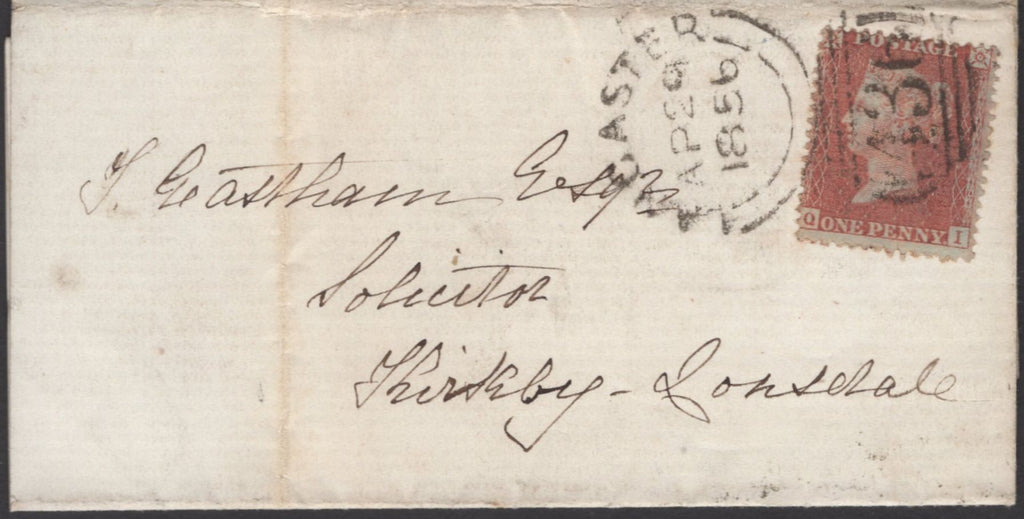 CASTER
AP 29
1856
POSTAGE
436
Q ONE PENNY I
T. Eastham Esqr
Solicitor
Kirkby-Lonsdale